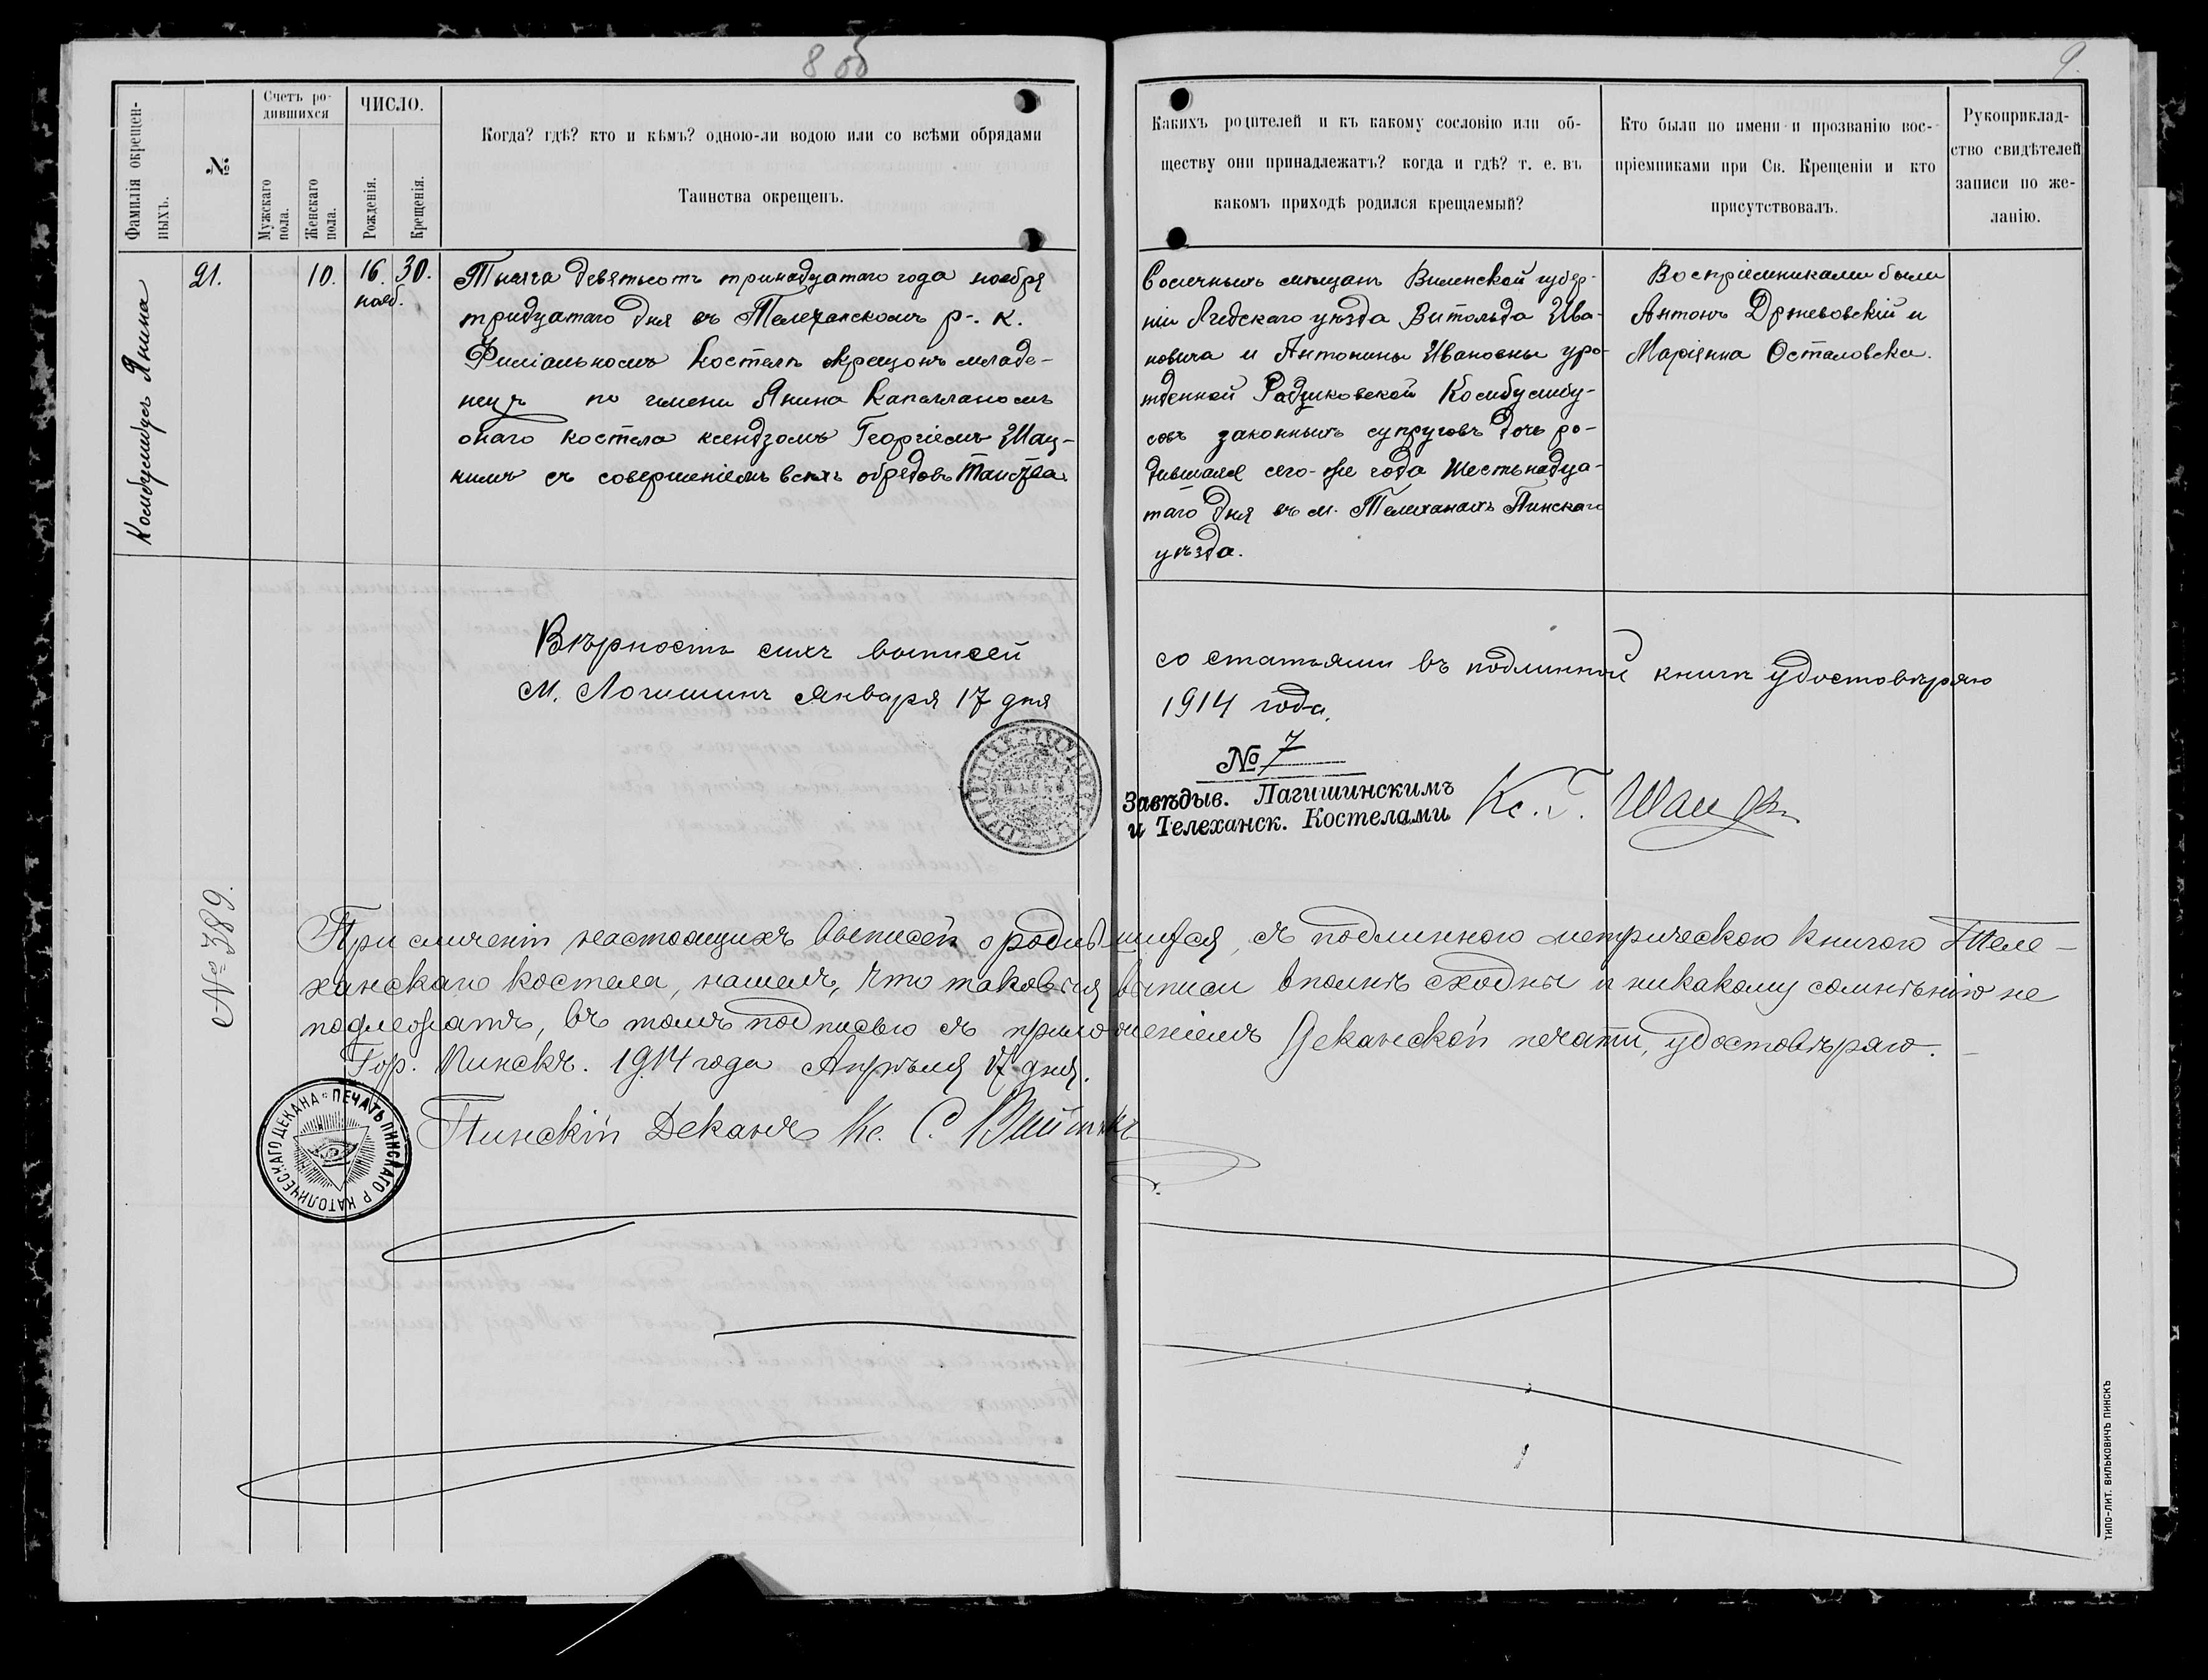 8 об
9.
Фамилія окрещен-
ныхъ.
№
Счетъ ро-
дившихся
Мужскаго
пола.
Женскаго
пола.
ЧИСЛО.
Рожденія.
Крещенія.
Когда? гдѣ? кто и кѣмъ? одною-ли водою или со всѣми обрядами
Таинства окрещенъ.
Какихъ родителей и къ какому сословію или об-
ществу они принадлежатъ? когда и гдѣ? т. е. въ
какомъ приходѣ родился крещаемый?
Кто были по имени и прозванію вос-
пріемниками при Св. Крещеніи и кто
присутствовалъ.
Рукоприклад-
ство свидѣтелей
записи по же-
ланію.
Комбулибусъ Янина
21.
10.
16.
нояб.
30.
Тысяча девятьсотъ тринадцатаго года ноября
тридцатаго дня въ Телеханскомъ р.-к.
Филіальномъ костелѣ окрещонъ младе-
нецъ по имени Янина Капелланомъ
онаго костела ксендзомъ Георгіемъ Шац-
кимъ съ совершеніемъ всѣхъ обрядовъ таинства
мѣщанъ Виленской губер-
ніи Лидскаго уѣзда Витольда Ива-
новича и Антонины Ивановны уро-
жденной Радзиковской Комбулибу-
совъ законныхъ супруговъ дочь ро-
дившаяся сего-же года шестьнадца-
таго дня въ м. Телеханахъ Пинскаго
уѣзда.
Воспріемниками были
Антонъ Држевовскій и
Маріянна Осталовска.
Вѣрность сихъ выписей
со статьями въ подлинной книгѣ удостовѣряю
М. Логишинъ января 17 дня
1914 года.
№ 7
Завѣдыв. Лагишинскимъ
и Телеханск. Костелами
Кс. Г. Шацкій
№ 389.
При сличеніи настоящихъ выписей о родившихся, съ подлинною метрическою книгою Теле-
ханскаго костела, нашелъ, что таковыя выписи вполнѣ сходны и никакому сомнѣнію не
подлежатъ, въ томъ подписью съ приложеніемъ Деканской печати, удостовѣряю.
Гор. Пинскъ. 1914 года Апрѣля 17 дня.
Пинскій Деканъ Кс. С.
ПЕЧАТЬ ПИНСКАГО Р КАТОЛИЧЕСКАГО ДЕКАНА
ТИПО-ЛИТ. ВИЛЬКОВИЧЪ ПИНСКЪ